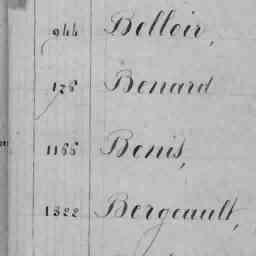 944 Belloir,
178 Benard
1166 Benis,
1322 Bergeault,